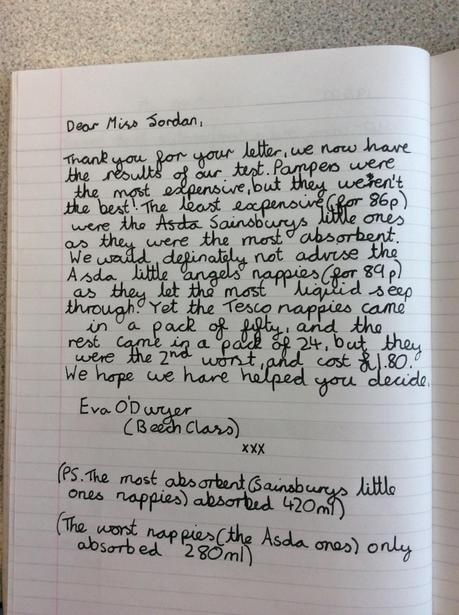 Dear Miss Jordan,
Thank you for your letter, we now have
the results of our test. Pampers were
the most expensive, but they weren't
the best! The least expensive (for 86p)
were the Asda Sainsburys little ones
as they were the most absorbent.
We would definately not advise the
Asda little angels nappies (for 89p)
as they let the most liquid seep
through. Yet the Tesco nappies came
in a pack of fifty, and the
rest came in a pack of 24, but they
were the 2nd worst, and cost £1.80.
We hope we have helped you decide.
Eva O'Dwyer
(Beech Class)
xxx
(PS. The most absorbent (Sainsburys little
ones nappies) absorbed 420ml)
(The worst nappies (the Asda ones) only
absorbed 280ml)